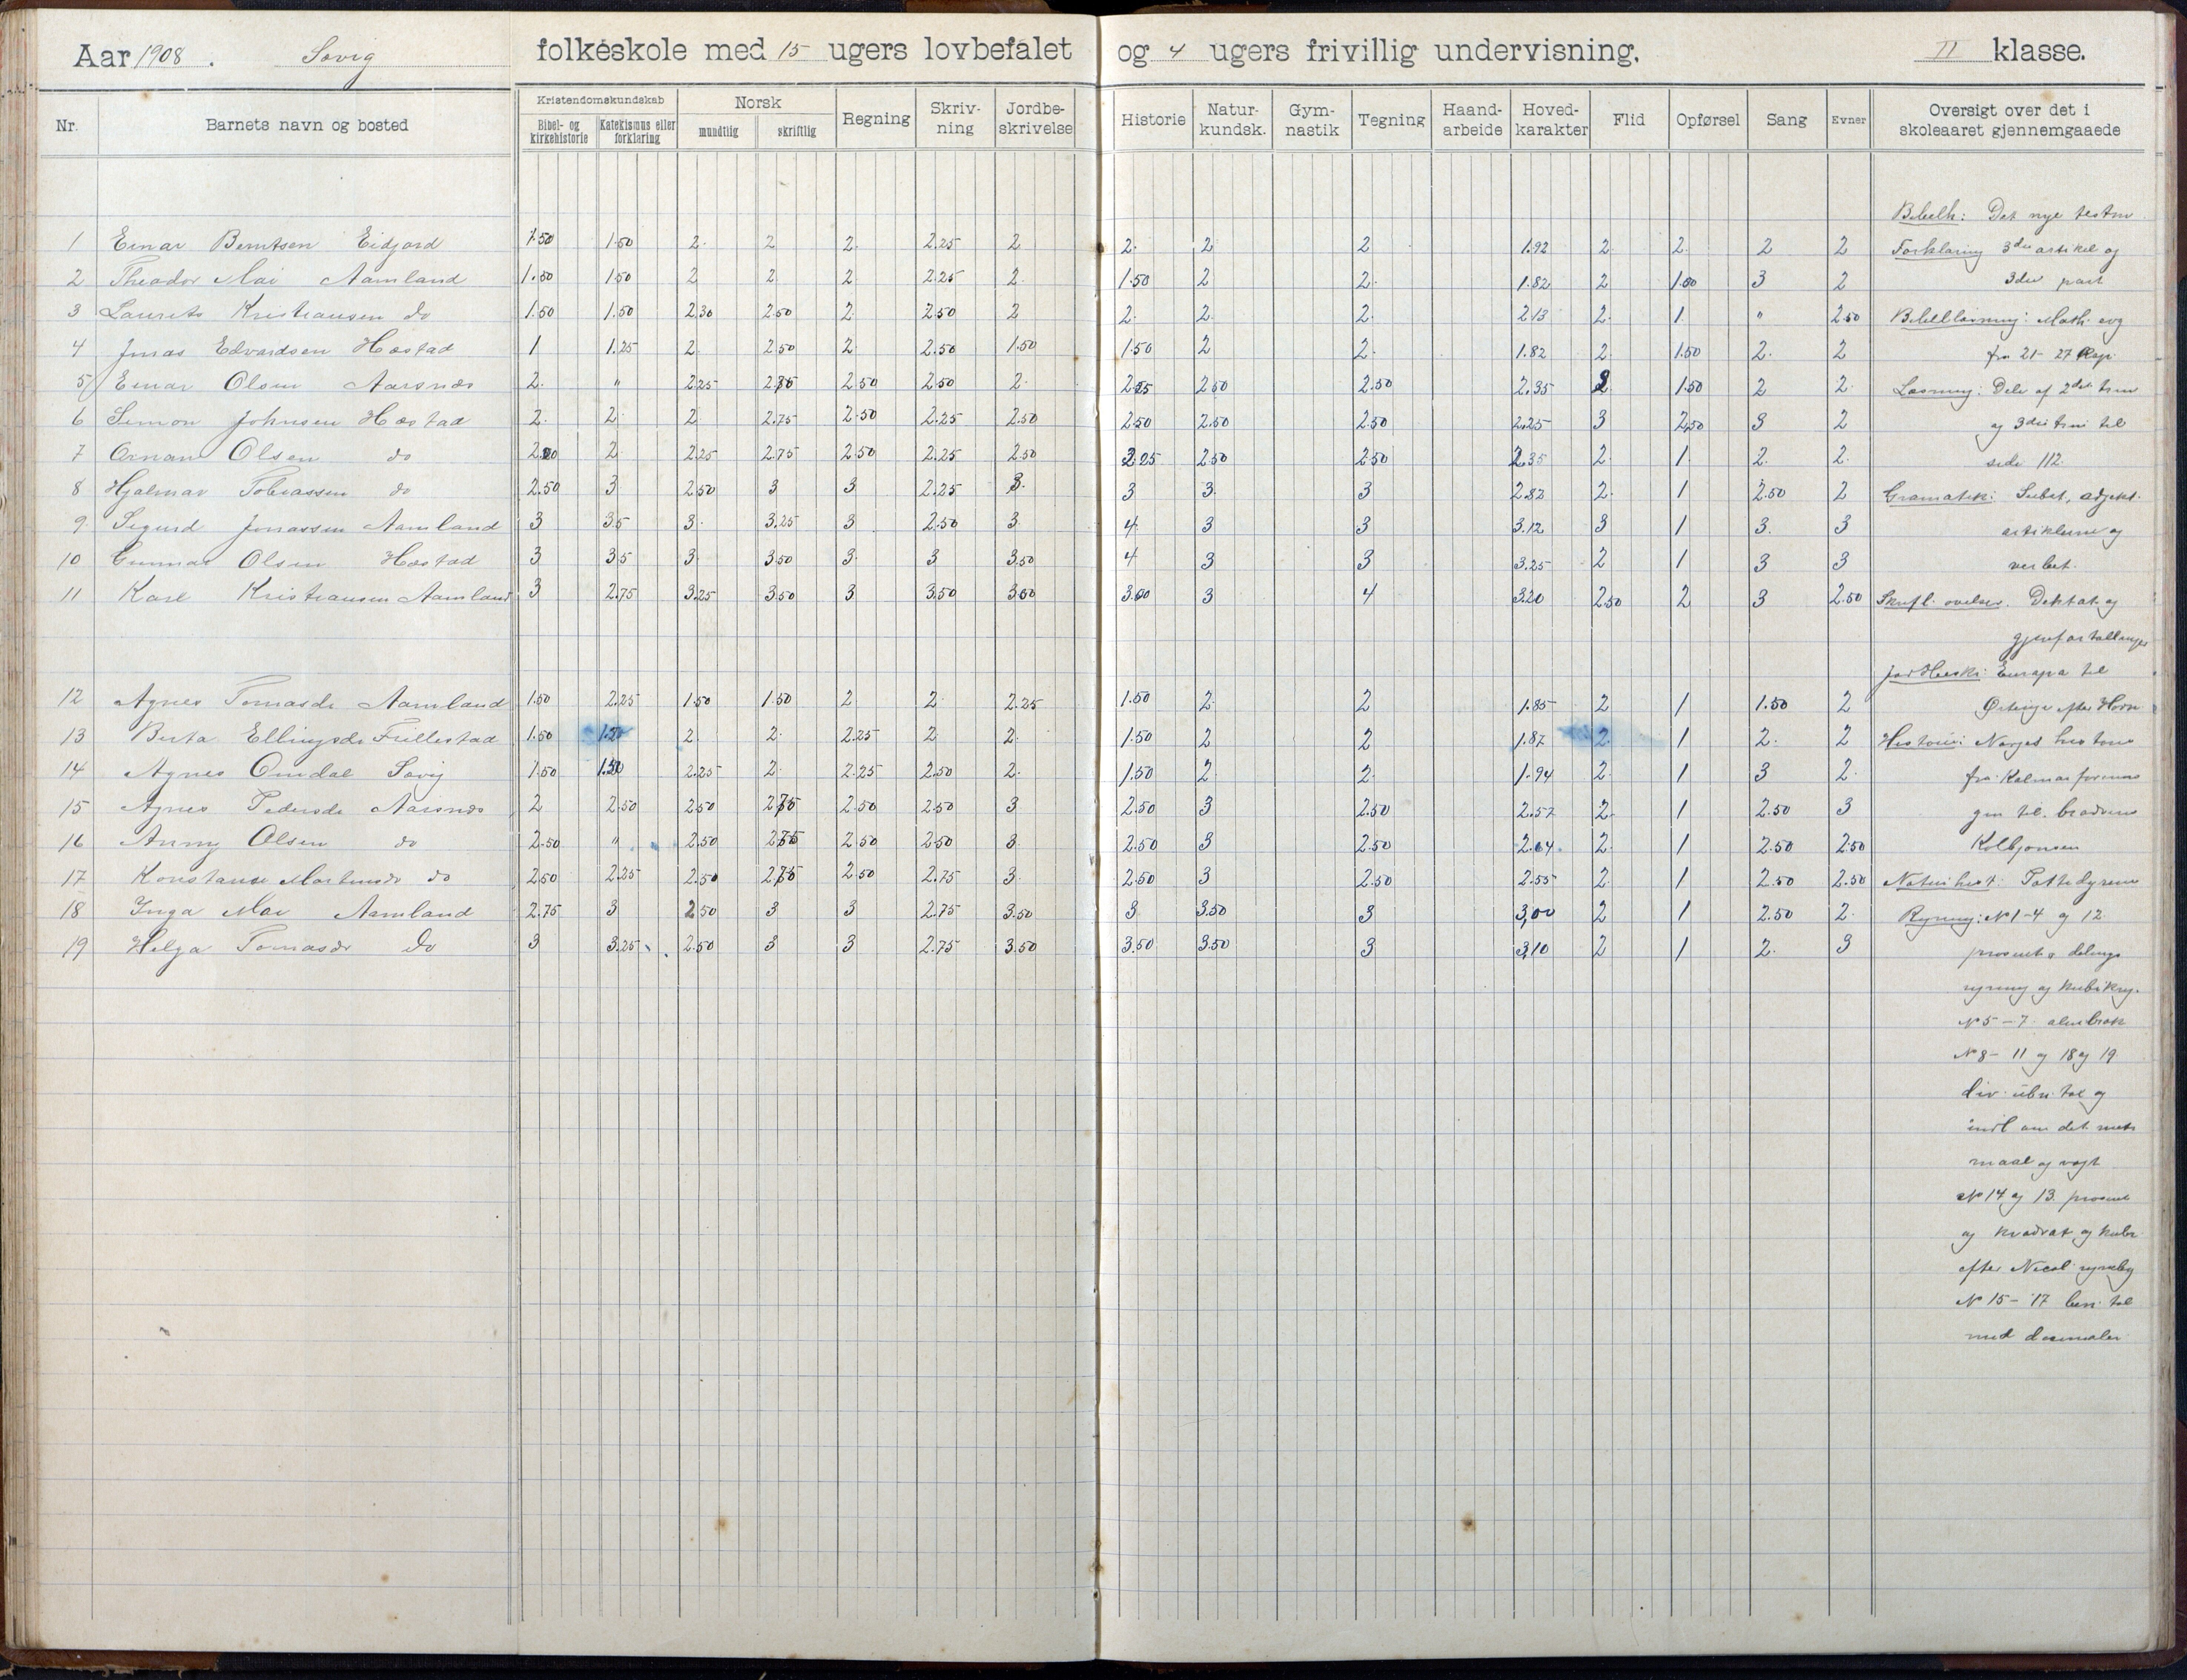 Aar 1908. Søvig folkeskole med 15 ugers lovbefalet og 4 ugers frivillig undervisning. II klasse.
Nr. Barnets navn og bosted Kristendomskundskab Bibel- og kirkehistorie Katekismus eller forklaring Norsk mundtlig skriftlig Regning Skriv-ning Jordbe-skrivelse Historie Natur-kundsk. Gym-nastik Tegning Haand-arbeide Hoved-karakter Flid Opførsel Sang Evner Oversigt over det i skoleaaret gjennemgaaede
Bibelh: Det nye testm
1 Einar Berntsen Eidjord 1.50 1.50 2. 2 2. 2.25 2 2. 2 2 1.92 2. 2. 2 2 Forklaring 3die artikel og
2 Theodor Mai Aamland 1.50 1.50 2 2 2. 2.25 2. 1.50 2 2. 1.82 2 1.50 3 2 3die part
3 Laurits Kristiansen do 1.50 1.50 2.30 2.50 2. 2.50 2 2. 2. 2. 2.13 2. 1. " 2.50 Bibellæsning: Math. evg
4 Jonas Edvardsen Hæstad 1 1.25 2. 2.50 2. 2.50 1.50 1.50 2 2. 1.82 2. 1.50 2. 2 fra 21-27 Kap.
5 Einar Olsen Aarsnæs 2. " 2.25 2.75 2.50 2.50 2. 2.25 2.50 2.50 2.35 2 1.50 2 2. Læsning: Dele af 2det trin
6 Simon Johnsen Hæstad 2. 2. 2 2.75 2.50 2.25 2.50 2.50 2.50 2.50 2.25 3 2.50 3 2 og 3die trin til
7 Ornan Olsen do 2.20 2 2.25 2.75 2.50 2.25 2.50 2.25 2.50 2.50 2.35 2. 1. 2. 2. side 112.
8 Hjalmar Tobiassen do 2.50 3 2.50 3 3 2.25 3. 3 3. 3 2.82 2. 1 2.50 2 Gramatik: Subst, adjekt.
9. Sigurd Jonassen Aamland 3 3.5 3. 3.25 3 2.50 3 4. 3 3 3.12 3 1 3. 3 artiklerne og
10 Gunnar Olsen Hæstad 3 3.5 3. 3.50 3. 3 3.50 4 3 3 3.25 2 1 3 3 verbet.
11 Karl Kristiansen Aamland 3 2.75 3.25 3.50 3 3.50 3.00 3.00 3 4 3.20 2.50 2 3 2.50 Skriftl. øvelser. Diktat og
gjenfortællinger
Jordbeskr: Europa til
12 Agnes Tomasdr Aamland 1.50 2.25 1.50 1.50 2 2 2.25 1.50 2. 2 1.85 2 1 1.50 2 Østerige efter Horn
13 Berta Ellingsdr Frillestad 1.50 1.50 2. 2. 2.25 2. 2. 1.50 2 2 1.87 2. 1 2. 2 Historie: Norges historie
14 Agnes Omdal Søvig 1.50 1.50 2.25 2. 2.25 2.50 2. 1.50 2. 2. 1.94 2. 1 3 2. fra Kalmarforenin
15 Agnes Pedersdr Aarsnæs 2 2.50 2.50 2.75 2.50 2.50 3 2.50 3 2.50 2.57 2. 1 2.50 3 gen til brødrene
16 Anny Olsen do 2.50 " 2.50 2.75 2.50 2.50 3. 2.50 3 2.50 2.64 2. 1 2.50 2.50 Kolbjønsen
17 Konstanse Martinsdr do 2.50 2.25 2.50 2.75 2.50 2.75 3. 2.50 3 2.50 2.55 2. 1 2.50 2.50 Naturhist: Pattedyrene
18 Inga Mai Aamland 2.75 3 2.50 3 3 2.75 3.50 3 3.50 3 3,00 2 1 2.50 2. Regning: No 1-4 og 12
19 Helga Tomasdr Do 3 3.25 2.50 3 3 2.75 3.50 3.50 3.50 3 3.10 2 1 2. 3 prosent og delings
regning og kubikreg.
No 5-7 alm brøk
No 8- 11 og 18 og 19
div. ubn. tal og
indl om det. metr
maal og vegt
No 14 og 13. prosent
og kvadrat og kubr
efter Nicol. regnebog
No 15- 17 ben. tal
med desimaler